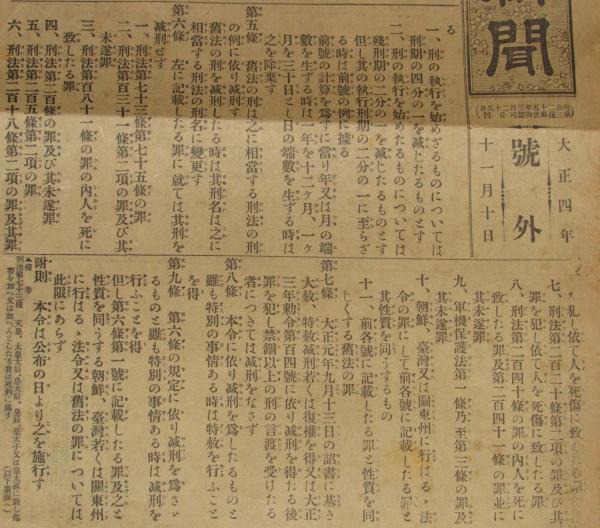 聞
大正四年
號外
十一月十日
る
一、刑の執行を始めざるものについては
刑期の四分の一を減じたるものとす
二、刑の執行を始めたるものについては
殘刑期の二分の一を減じたるものとす
但し其の執行刑期の二分の一に至らざ
る時は前號の例に據る
前號の計算を爲すに當り年又は月の端
數を生ずる時は一年を十二ヶ月、一ヶ
月を三十日とし日の端數を生ずる時は
之を除棄す
第五條 舊法の刑は之に相當する刑法の刑
の例に依り減刑す
舊法の刑を減刑したる時は其刑名は之に
相當する刑法の刑名に變更す
第六條 左に記載したる罪に就ては其刑を
減刑せず
一、刑法第七十三條第七十五條の罪
二、刑法第百三十一條第二項の罪及び其
未遂罪
三、刑法第百八十一條の罪の內人を死に
致したる罪
四、刑法第二百條の罪及び其未遂罪
五、刑法第二百五條第二項の罪
六、刑法第二百十八條第二項の罪及其罪
犯し依て人を死傷に致したる罪
七、刑法第二百二十條第二項の罪及び其
罪を犯し依て人を死傷に致したる罪
八、刑法第二百四十條の罪の內人を死に
致したる罪及第二百四十一條の罪並に
其未遂罪
九、軍機保護法第一條乃至第三條の罪及
其未遂罪
十、朝鮮、臺灣又は關東州に行はるゝ法
令の罪にして前各號に記載したる罪と
其性質を同うするもの
十一、前各號に記載したる罪と性質を同
じくする舊法の罪
第七條 大正元年九月十三日の詔書に基き
大赦、特赦減刑若くは復權を得又は大正
三年勅令第百四號に依り減刑を得たる後
罪を犯し禁錮以上の刑の言渡を受けたる
者については減刑をなさず
第八條 本令に依り減刑を爲したるものと
雖も特別の事情ある時は特赦を行ふこと
を得
第九條 第六條の規定に依り減刑を爲さゞ
るものと雖も特別の事情ある時は減刑を
行ふことを得
但し第六條第一號に記載したる罪及之と
性質を同うする朝鮮、臺灣若くは關東州
に行はるゝ法令又は舊法の罪については
此限にあらず
附則 本令は公布の日より之を施行す
備考
刑法第七十三條 天皇、太皇太后、皇太后、皇后、皇太子又は皇太孫に對し危
害を加へ又は加へんとしたる者は死刑に處す
(以下裏面へ)